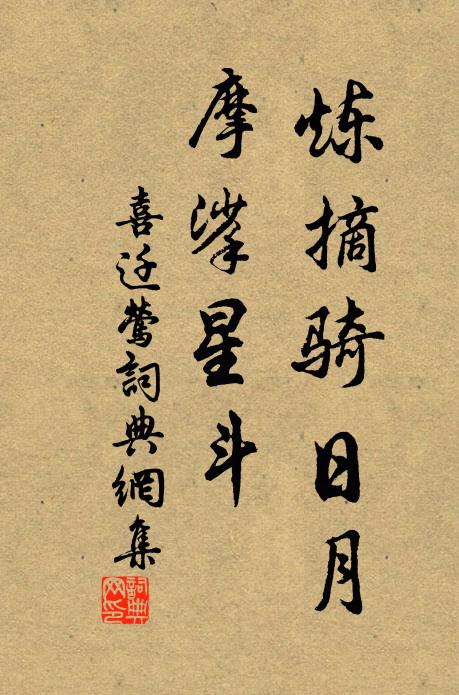 炼摘骑日月
摩挲星斗
喜迁莺詞典網集
詞典网印